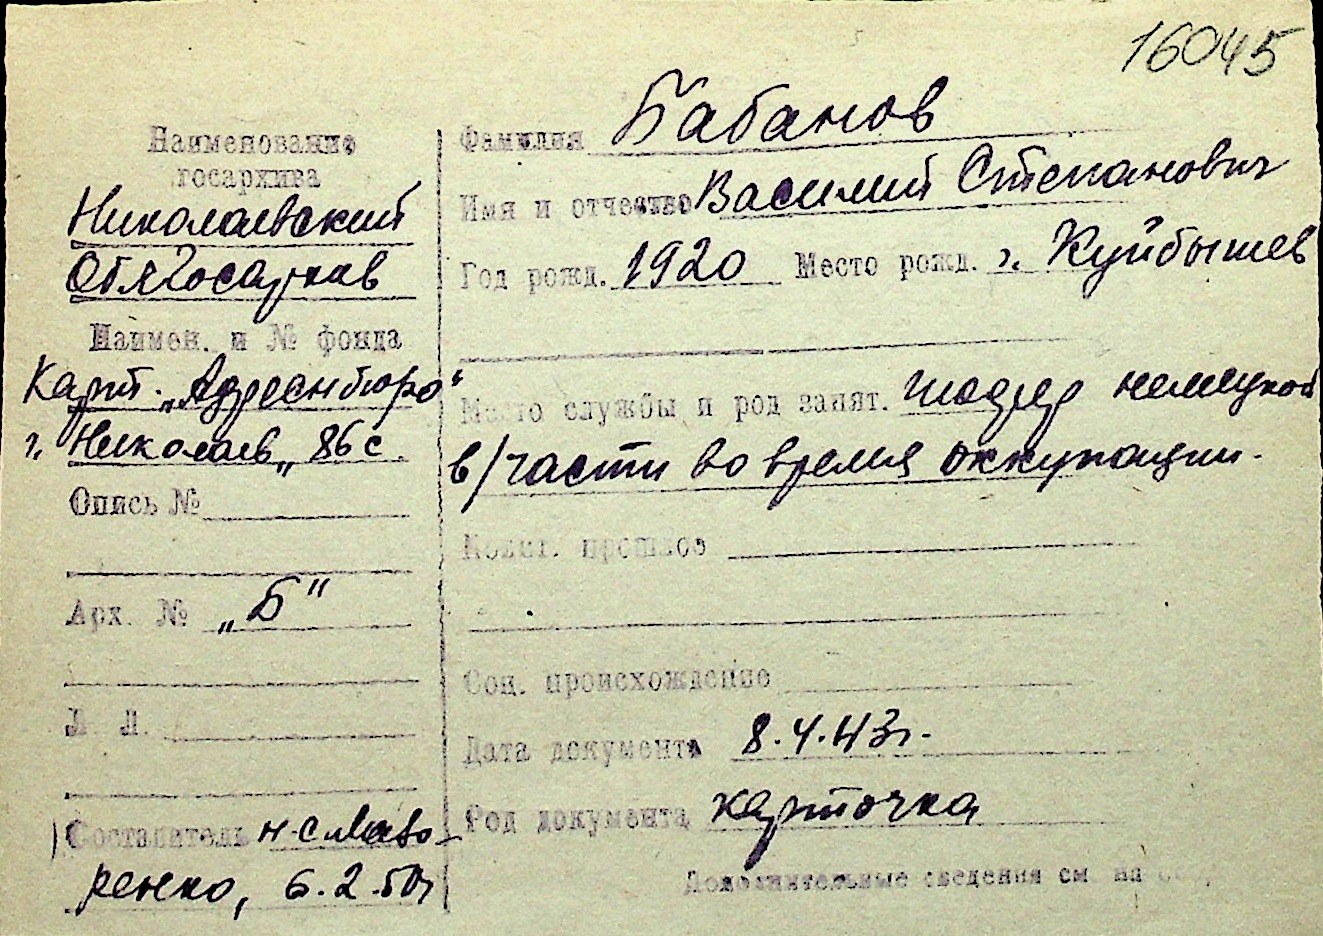 16045
Наименование
госархива
Николаевский
Облгосархив
Наимен. и № фонда
Карт. „Адресн бюро"
г. Николаев„ 86 с.
Опись №
Арх. № „Б"
Л Л.
Составитель
ренко, 6.2.50г
Фамилия Бабанов
Имя и отчество Василий Степанович
Год рожд. 1920 Место рожд. г. Куйбышев
Место службы и род занят. немецкой
в/части во время оккупации.
Конкт. прошлое
Соц. происхождение
Дата документа 8.4.43г.
Род документа карточка
Дополнительные сведения см на